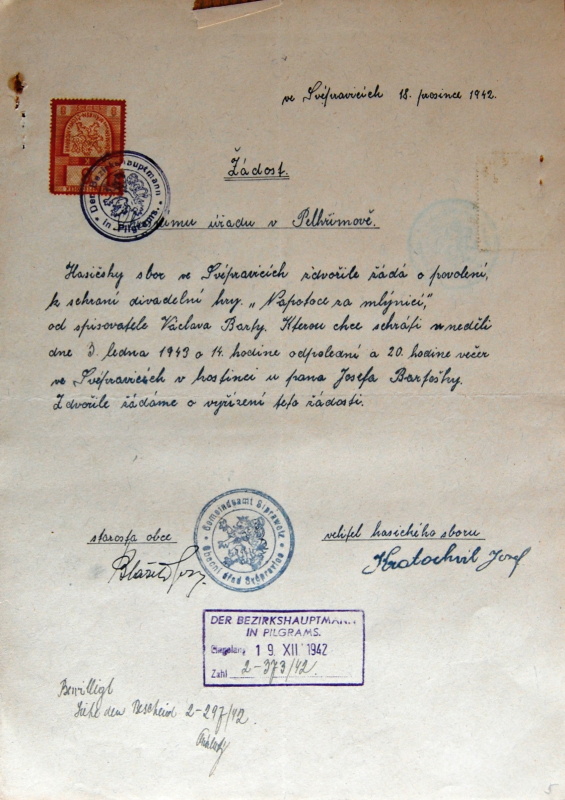 ve Svépravicích 18. prosince 1942.
Žádost.
úřadu v Pelhřimově.
Hasičský sbor ve Svépravicích zdvořile žádá o povolení,
k sehraní divadelní hry. „Na potoce za mlýnicí,"
od spisovatele Václava Barty. Kterou chce sehráti v neděli
dne 3. ledna 1943 o 14. hodine odpolední a 20. hodine večer
ve Svépravicích v hostinci u pana Josefa Bartošky.
Zdvořile žádáme o vyřízení teto žádosti.
starosta obce
velitel hasičího sboru
Kratochvil Josef
Der Bezirkshauptmann in Pilgrams.
Obecní úřad Svépravice
DER BEZIRKSHAUPTMANN
IN PILGRAMS.
Eingelang 19. XII 1942
Zahl 2-373/42.
Bewilligt
Siehe den Bescheid 2-297/42.
5